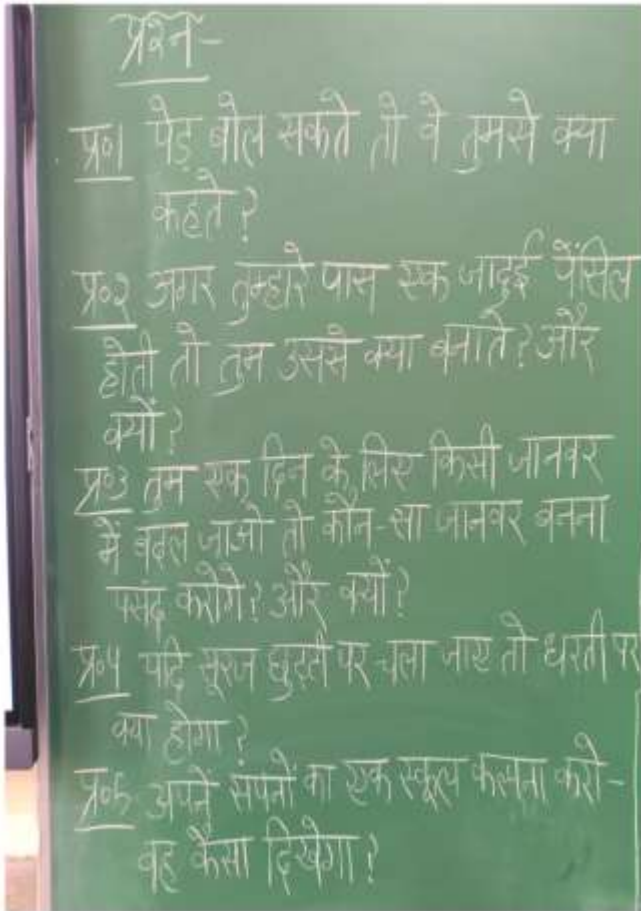 प्रश्न-
प्र०1 पेड़ बोल सकते तो वे तुमसे क्या
कहते?
प्र०२ अगर तुम्हारे पास एक जादुई पेंसिल
होती तो तुम उससे क्या बनाते? और
क्यों?
प्र०३ तुम एक दिन के लिए किसी जानवर
में बदल जाओ तो कौन-सा जानवर बनना
पसंद करोगे? और क्यों?
प्र०५ यदि सूरज छुट्टी पर चला जाए तो धरती पर
क्या होगा?
प्र०६ अपने सपनों का एक स्कूल कल्पना करो-
वह कैसा दिखेगा?